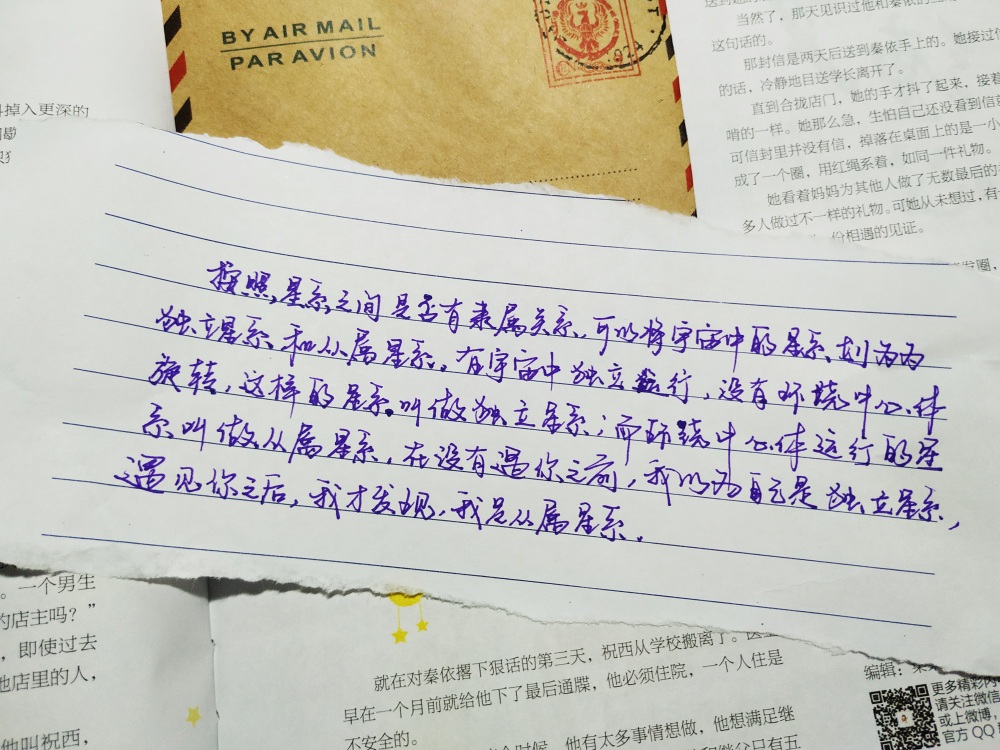 BY AIR MAIL
PAR AVION
送到
当然了，那天见识过他和秦依的
这句话的。
那封信是两天后送到秦依手上的。她接过信
的话，冷静地目送学长离开了。
直到合拢店门，她的手才抖了起来，接着
啃的一样。她那么急，生怕自己还没看到信就
可信封里并没有信，掉落在桌面上的是一小
成了一个圈，用红绳系着，如同一件礼物。
她看着妈妈为其他人做了无数最后的
多人做过不一样的礼物。可她从未想过，有
份相遇的见证。
发圈，
掉入更深的
按照星系之间是否有隶属关系，可以将宇宙中的星系划为为
独立星系和从属星系。在宇宙中独立运行，没有环绕中心体
旋转，这样的星系叫做独立星系；而环绕中心体运行的星
系叫做从属星系，在没有遇你之前，我以为自己是独立星系，
遇见你之后，我才发现，我是从属星系。
。一个男生
的店主吗？”
，即使过去
他店里的人，
他叫祝西，
就在对秦依撂下狠话的第三天，祝西从学校搬离了。医生
早在一个月前就给他下了最后通牒，他必须住院，一个人住是
不安全的。
时候，他有太多事情想做，他想满足继
和继父只有五
编辑：
更多精彩内
请关注微信
或上微博，
官方QQ